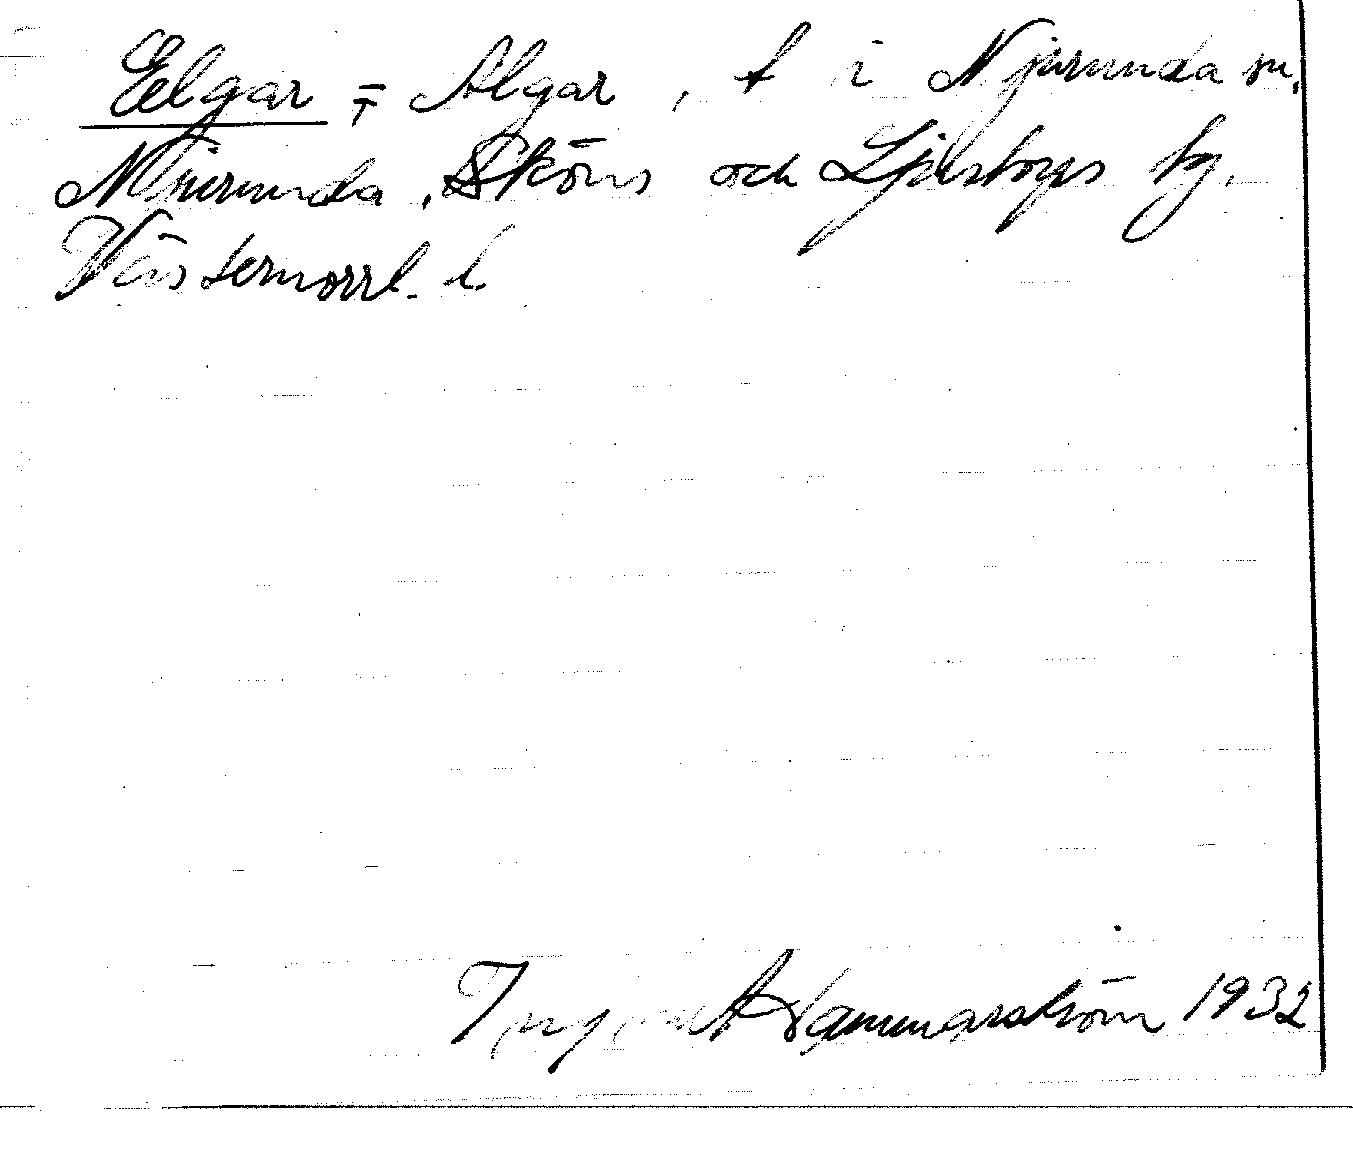 Elgar = Algar, t i Njurunda sn,
Njurunda, Sköns och Ljustorps tg,
Västernorrl. l.
Hammarström 1932